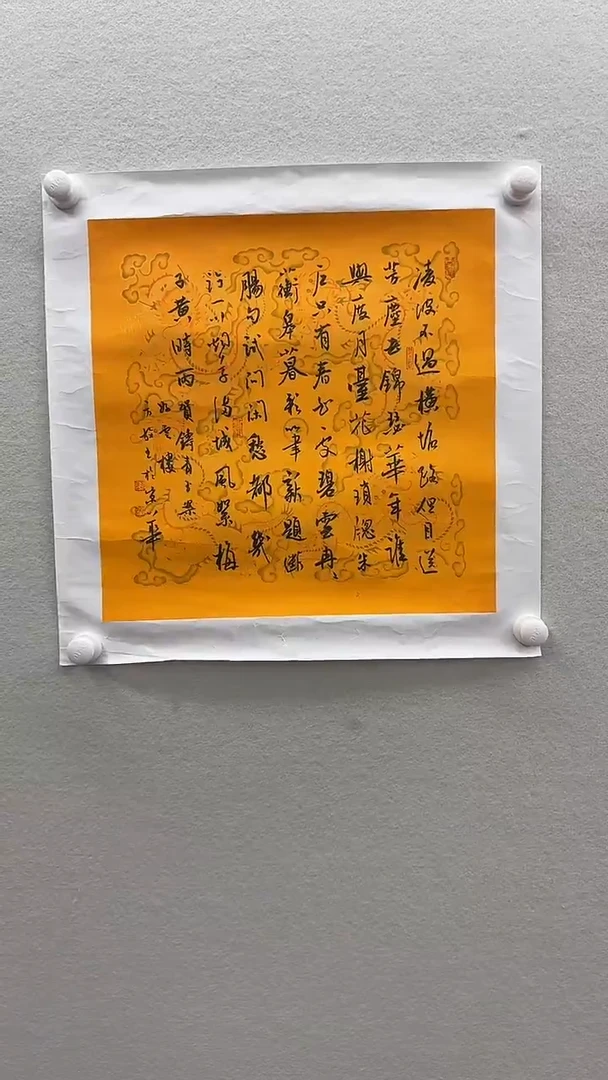 凌波不過橫塘路但目送
芳塵去錦瑟華年誰
與度月臺花榭瑣牕朱
戶只有春知處碧雲冉々
蘅皋暮彩筆新題斷
腸句試問閑愁都幾
許一川烟草滿城風絮梅
子黃時雨賀鑄青玉案
樓
於京華